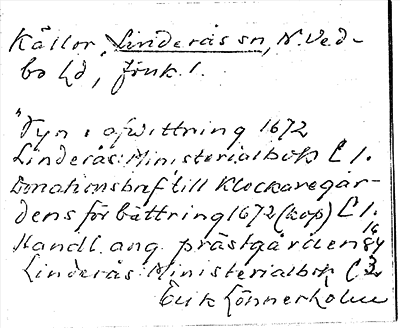 Källor, Linderås sn, N. Ved-
bo hd, Jönk. l.
"Syn o afwittring 1672
Linderås: Ministerialbok C 1.
Donationsbref till Klockaregår-
dens förbättring 1672 (kop) C 1.
Handl. ang. prästgården 1684
Linderås: Ministerialbok C 3
Erik Lönnerholm